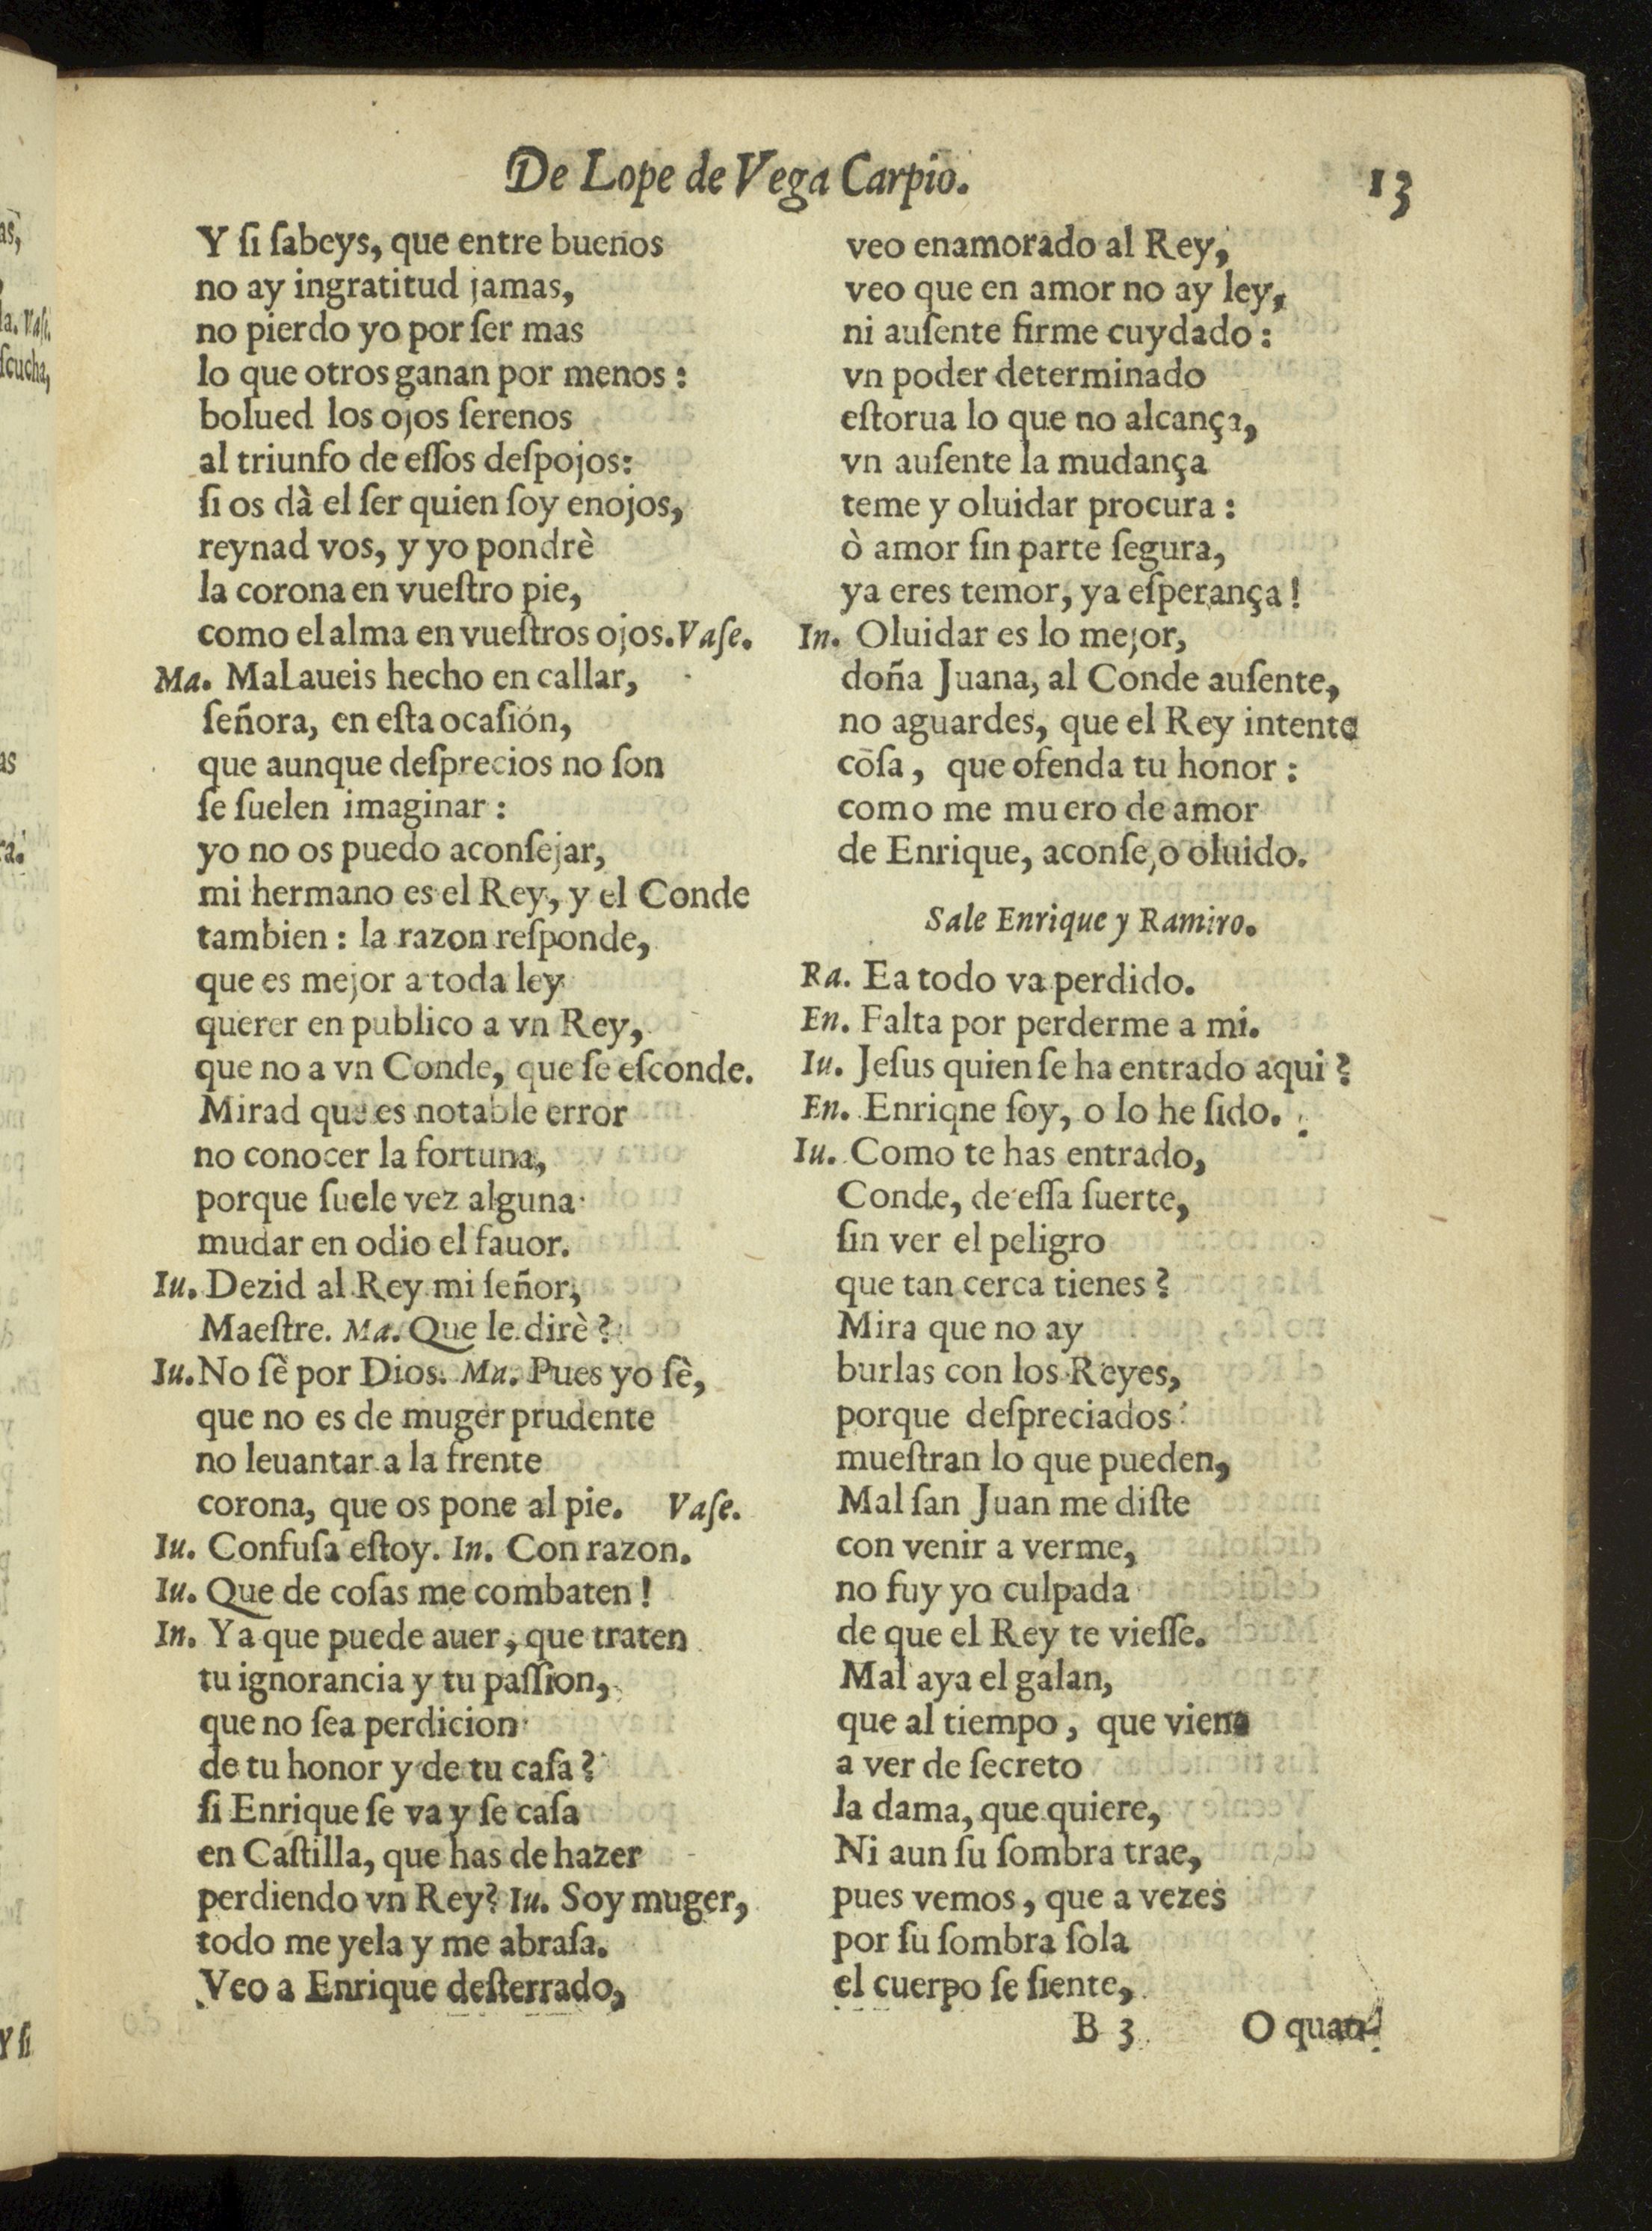 De Lope de Vega Carpio.
13
Y ſi ſabeys, que entre buenos
no ay ingratitud jamas,
no pierdo yo por ſer mas
lo que otros ganan por menos :
bolued los ojos ſerenos
al triunfo de eſſos deſpojos:
ſi os dà el ſer quien ſoy enojos,
reynad vos, y yo pondrè
la corona en vueſtro pie,
como el alma en vueſtros ojos. Vaſe.
Ma. Mal aueis hecho en callar,
ſeñora, en eſta ocaſión,
que aunque deſprecios no ſon
ſe ſuelen imaginar :
yo no os puedo aconſejar,
mi hermano es el Rey, y el Conde
tambien : la razon reſponde,
que es mejor a toda ley
querer en publico a vn Rey,
que no a vn Conde, que ſe eſconde.
Mirad que es notable error
no conocer la fortuna,
porque ſuele vez alguna
mudar en odio el fauor.
Iu. Dezid al Rey mi ſeñor,
Maeſtre. Ma. Que le dirè ?
Iu. No ſè por Dios. Ma. Pues yo ſè,
que no es de muger prudente
no leuantar a la frente
corona, que os pone al pie. Vaſe.
Iu. Confuſa eſtoy. In. Con razon.
Iu. Que de coſas me combaten !
In. Ya que puede auer, que traten
tu ignorancia y tu paſſion,
que no ſea perdicion
de tu honor y de tu caſa ?
ſi Enrique ſe va y ſe caſa
en Caſtilla, que has de hazer
perdiendo vn Rey? Iu. Soy muger,
todo me yela y me abraſa.
Veo a Enrique deſterrado,
veo enamorado al Rey,
veo que en amor no ay ley,
ni auſente firme cuydado :
vn poder determinado
eſtorua lo que no alcança,
vn auſente la mudança
teme y oluidar procura :
ò amor ſin parte ſegura,
ya eres temor, ya eſperança !
In. Oluidar es lo mejor,
doña Juana, al Conde auſente,
no aguardes, que el Rey intente
cõſa, que ofenda tu honor :
como me muero de amor
de Enrique, aconſejo oluido.
Sale Enrique y Ramiro.
Ra. Ea todo va perdido.
En. Falta por perderme a mi.
Iu. Jeſus quien ſe ha entrado aqui ?
En. Enriqne ſoy, o lo he ſido.
Iu. Como te has entrado,
Conde, de eſſa ſuerte,
ſin ver el peligro
que tan cerca tienes ?
Mira que no ay
burlas con los Reyes,
porque deſpreciados
mueſtran lo que pueden,
Mal ſan Juan me diſte
con venir a verme,
no fuy yo culpada
de que el Rey te vieſſe.
Mal aya el galan,
que al tiempo, que viene
a ver de ſecreto
la dama, que quiere,
Ni aun ſu ſombra trae,
pues vemos, que a vezes
por ſu ſombra ſola
el cuerpo ſe ſiente,
B 3 O quan-